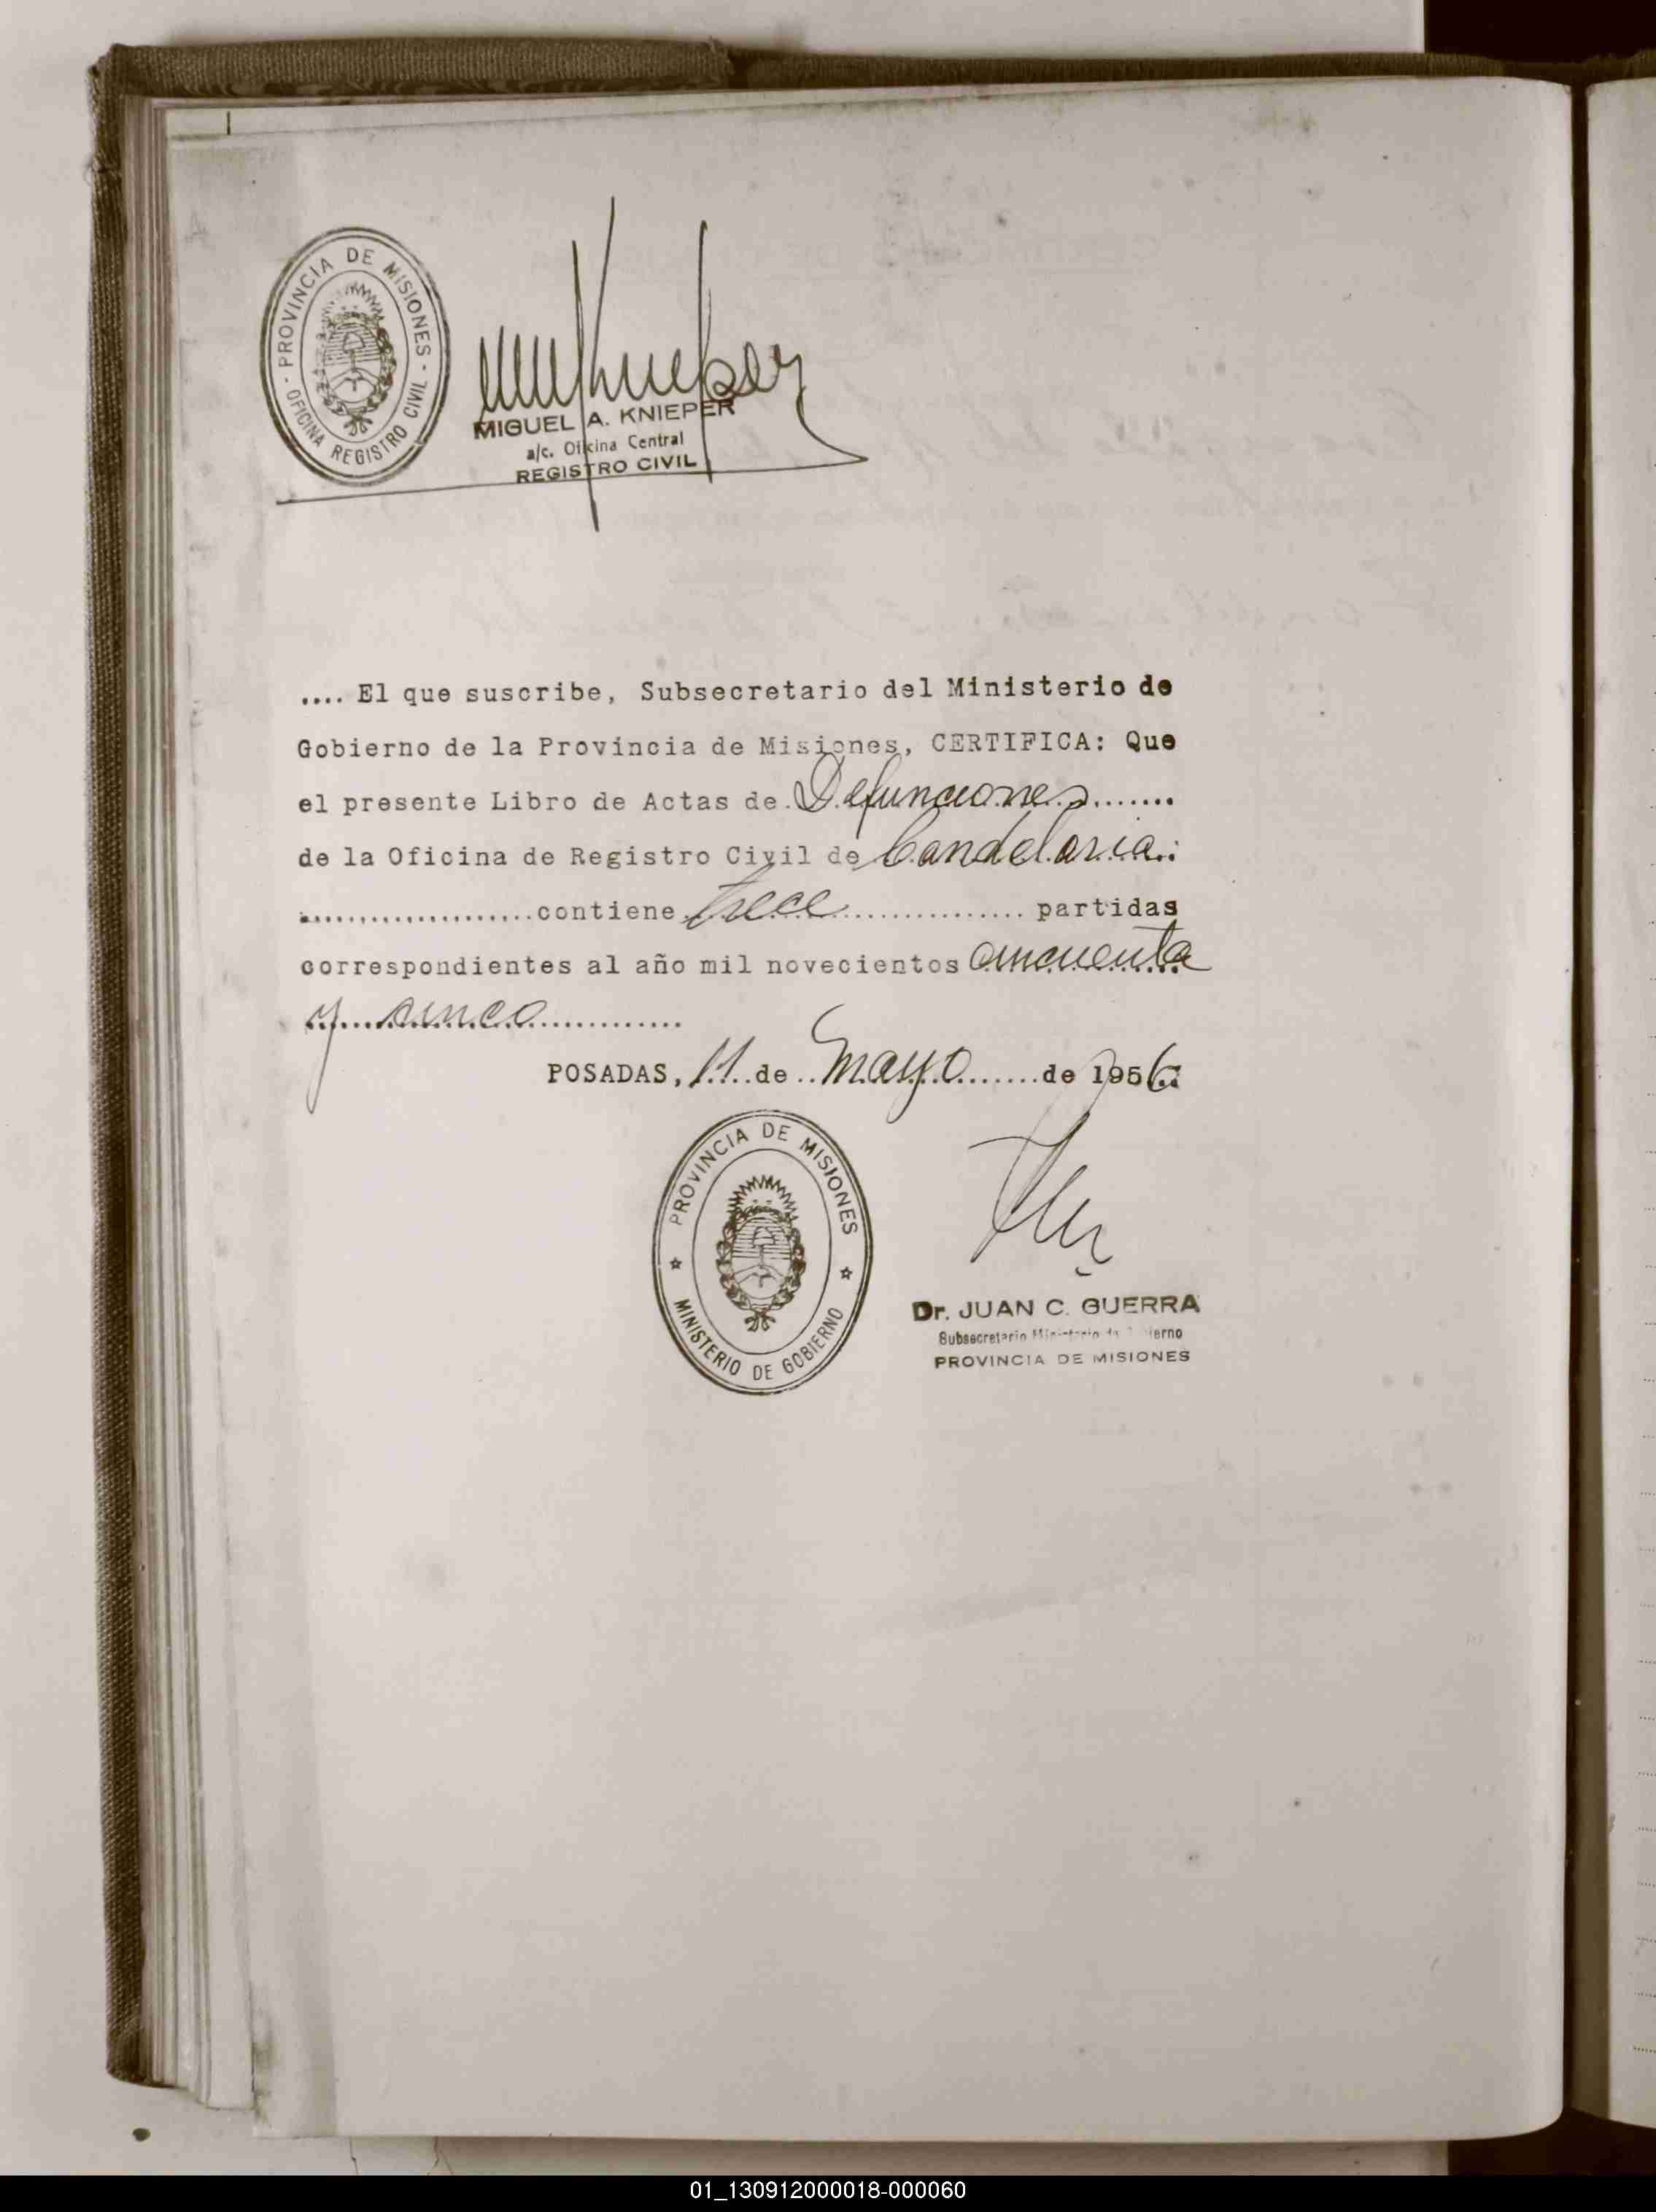 PROVINCIA DE MISIONES
OFICINA REGISTRO CIVIL
MIGUEL A. KNIEPER
a/c. Oficina Central
REGISTRO CIVIL
.... El que suscribe, Subsecretario del Ministerio de
Gobierno de la Provincia de Misiones, CERTIFICA: Que
el presente Libro de Actas de Defunciones.......
de la Oficina de Registro Civil de Candelaria.:
....................contiene trece ................ partidas
correspondientes al año mil novecientos cincuenta
y cinco ............
POSADAS, 11 de .. Mayo .......de 1956.
PROVINCIA DE MISIONES
MINISTERIO DE GOBIERNO
Dr. JUAN C. GUERRA
Subsecretario Ministerio de Gobierno
PROVINCIA DE MISIONES
01_130912000018-000060